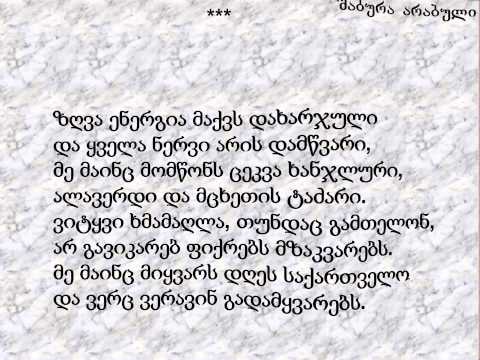 მაბურა არაბული
***
ზღვა ენერგია მაქვს დახარჯული
და ყველა ნერვი არის დამწვარი,
მე მაინც მომწონს ცეკვა ხანჯლური,
ალავერდი და მცხეთის ტაძარი.
ვიტყვი ხმამაღლა, თუნდაც გამთელონ,
არ გავიკარებ ფიქრებს მზაკვარებს.
მე მაინც მიყვარს დღეს საქართველო
და ვერც ვერავინ გადამყვარებს.